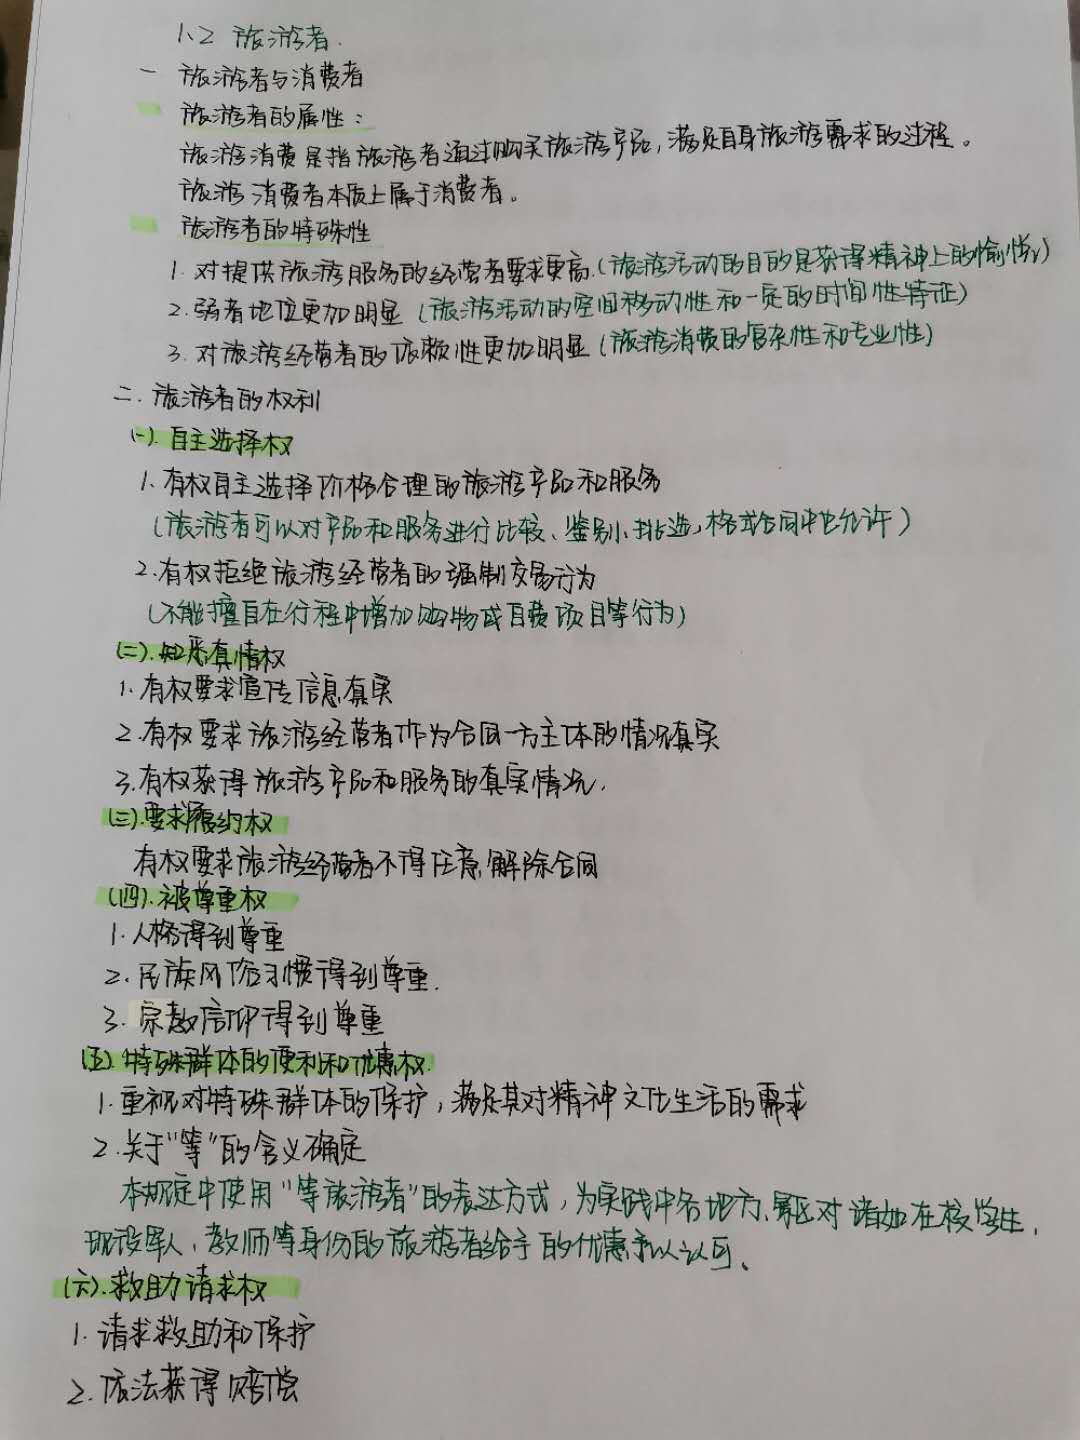 1.2 旅游者.
一 旅游者与消费者
旅游者的属性：
旅游消费是指旅游者通过购买旅游产品，满足自身旅游需求的过程。
旅游消费者本质上属于消费者。
旅游者的特殊性
1. 对提供旅游服务的经营者要求更高.(旅游活动的目的是获得精神上的愉悦)
2. 弱者地位更加明显（旅游活动的空间移动性和一定的时间性特征）
3. 对旅游经营者的依赖性更加明显（旅游消费的复杂性和专业性）
二. 旅游者的权利
(一). 自主选择权
1. 有权自主选择价格合理的旅游产品和服务
（旅游者可以对产品和服务进行比较、鉴别、挑选，格式合同中也允许）
2. 有权拒绝旅游经营者的强制交易行为
（不能擅自在行程中增加购物或自费项目等行为）
(二). 知悉真情权
1. 有权要求宣传信息真实
2. 有权要求旅游经营者作为合同一方主体的情况真实
3. 有权获得旅游产品和服务的真实情况.
(三). 要求履约权
有权要求旅游经营者不得任意解除合同
(四). 被尊重权
1. 人格得到尊重
2. 民族风俗习惯得到尊重.
3. 宗教信仰得到尊重
(五). 特殊群体的便利和优惠权.
1. 重视对特殊群体的保护，满足其对精神文化生活的需求
2. 关于“等”的含义确定
本规定中使用“等旅游者”的表达方式，为实践中各地方、景区对诸如在校学生、
现役军人、教师等身份的旅游者给予的优惠予以认可。
(六). 救助请求权
1. 请求救助和保护
2. 依法获得赔偿